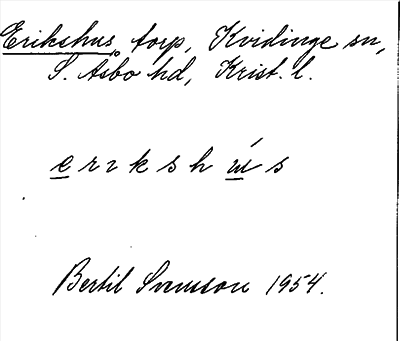 Erikshus, torp, Kvidinge sn,
S. Åsbo hd, Krist. l.
erıkshús
Bertil Svensson 1954.